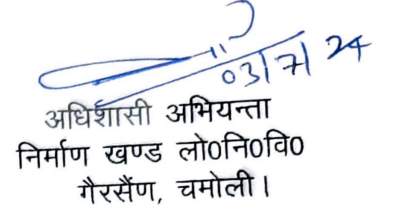 03/7/24
अधिशासी अभियन्ता
निर्माण खण्ड लो0नि0वि0
गैरसैंण, चमोली।